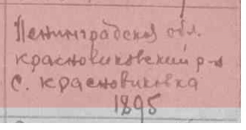 Ленинградская обл.
красновиковский р-н
с. красновиковка
1895